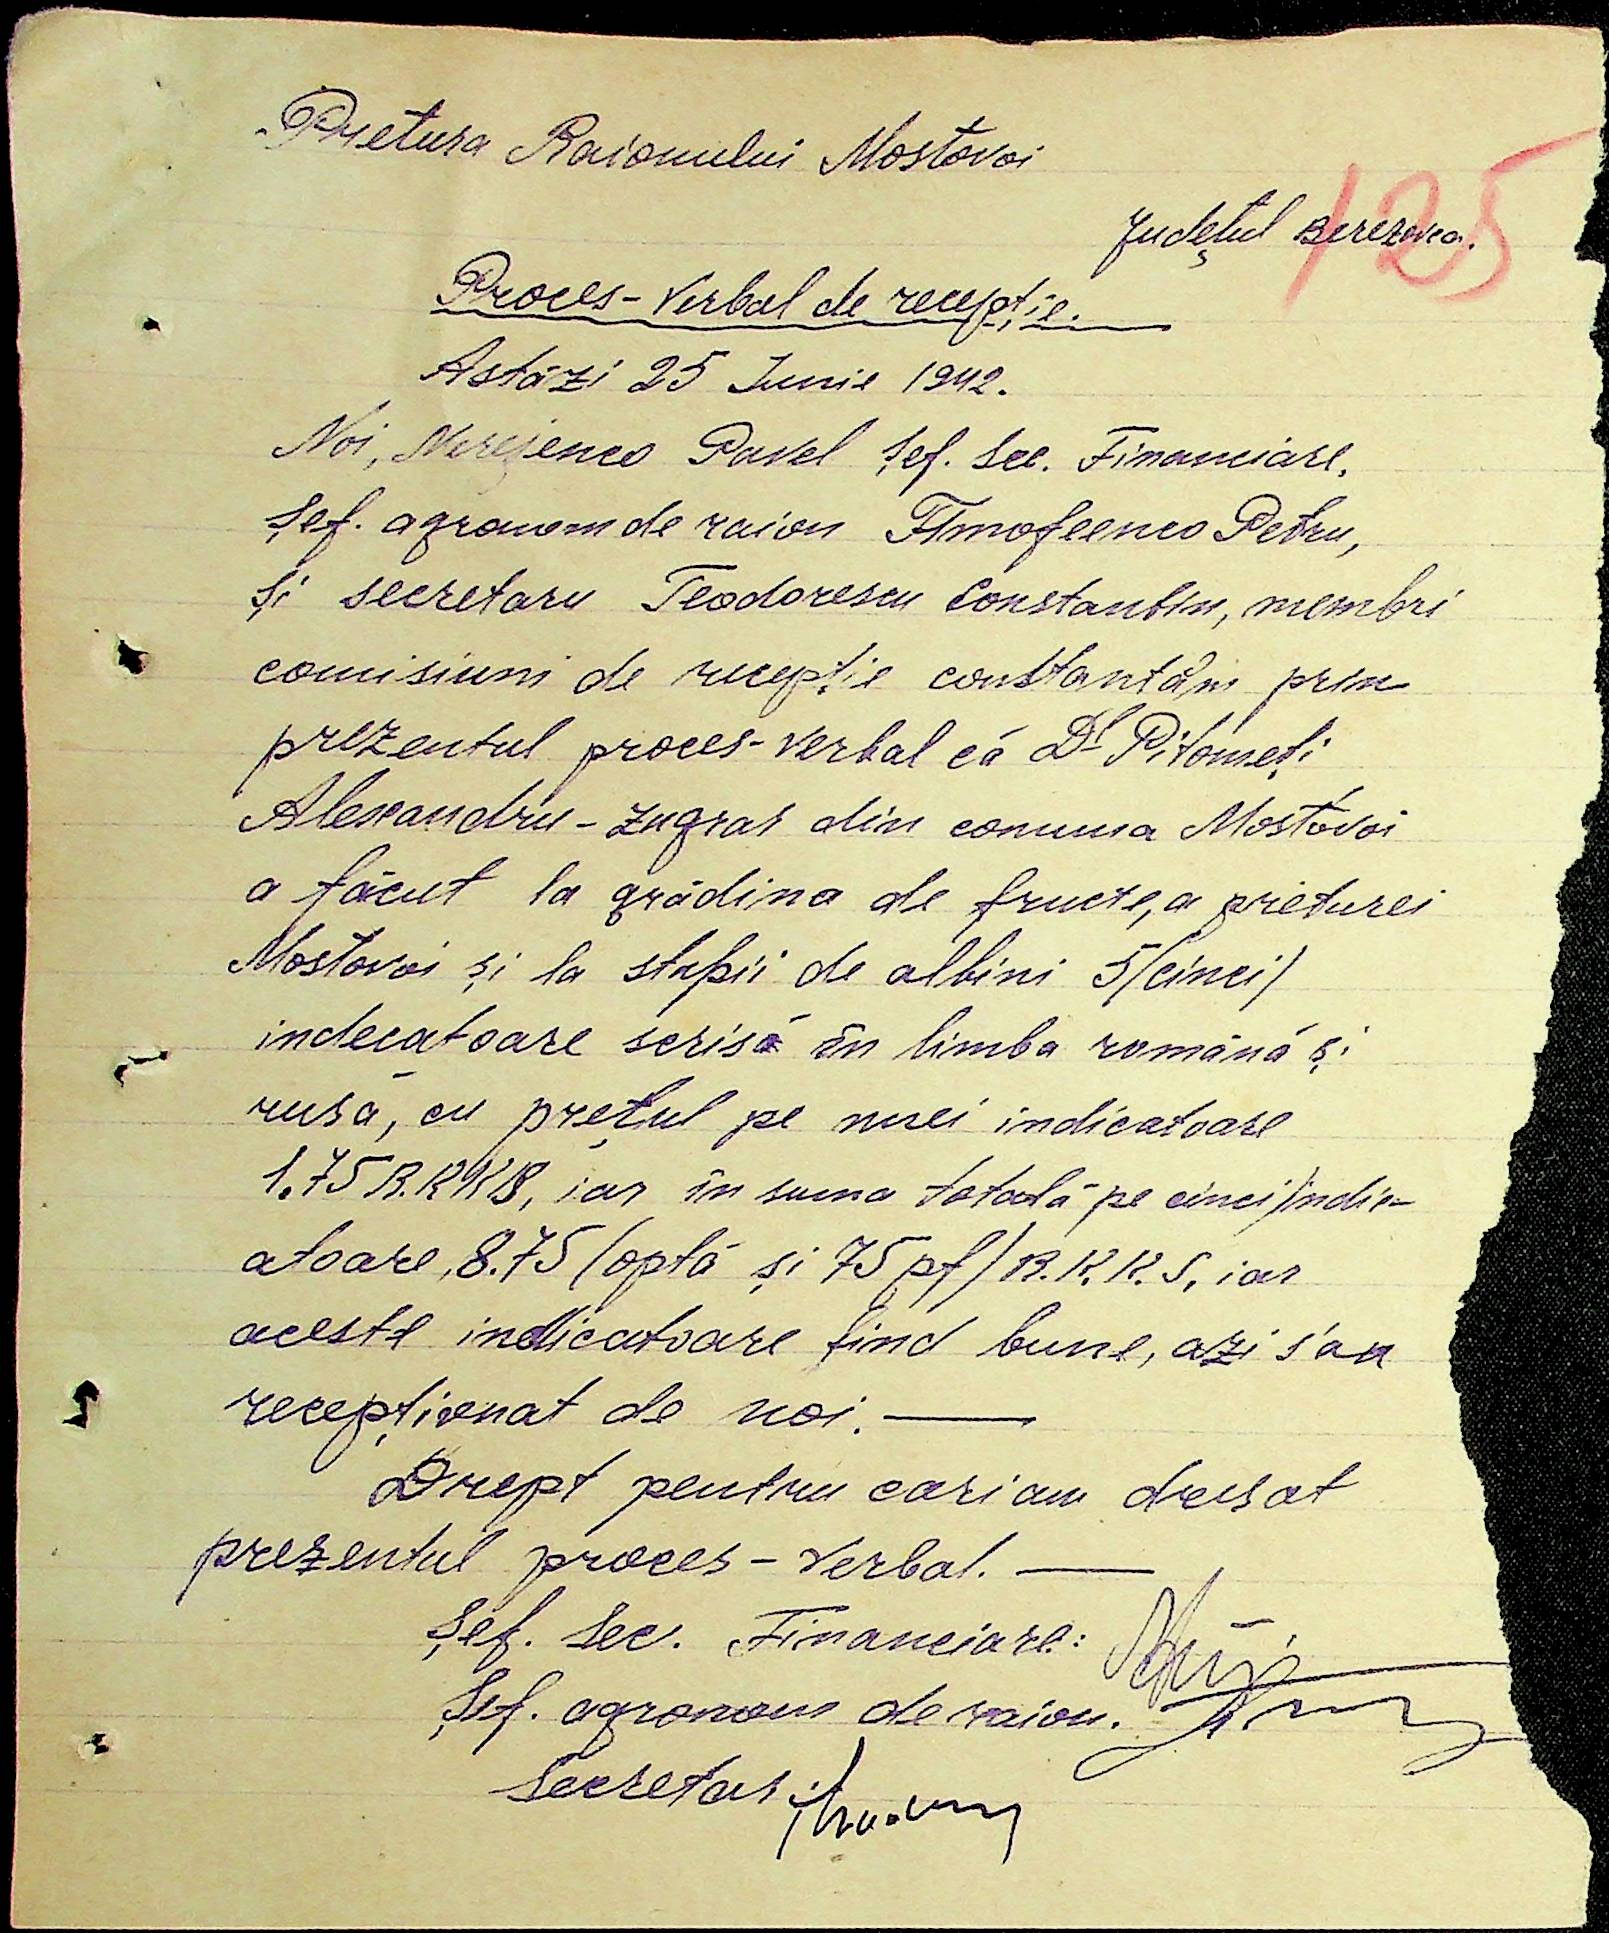 Pretura Raionului Mostovoi
125
Județul Berezovca.
Proces-Verbal de recepție.
Astăzi 25 Iunie 1942.
Noi, Merejenco Pavel Șef. Sec. Financiare,
Șef. agronom de raion Timofeenco Petru,
și secretaru Teodorescu Constantin, membri
comisiuni de recepție constantăm prin
prezentul proces-verbal că Dl Pitomeți
Alexandru-zugrav din comuna Mostovoi
a făcut la grădina de fructe, a preturei
Mostovoi și la stupii de albini 5/cinci/
indecatoare scrisă în limba română și
rusă, cu prețul pe unei indicatoare
1.75 R.K.K.S, iar în suma totală pe cinci/indic-
atoare, 8.75 (optă și 75 pf) R.K.K.S, iar
aceste indicatoare find bune, azi s'au
recepționat de noi.
Drept pentru cari am dresat
prezentul proces-verbal.
Șef. Sec. Financiare:
Șef. agronom de raion.
Secretar: